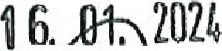 16. 01. 2024